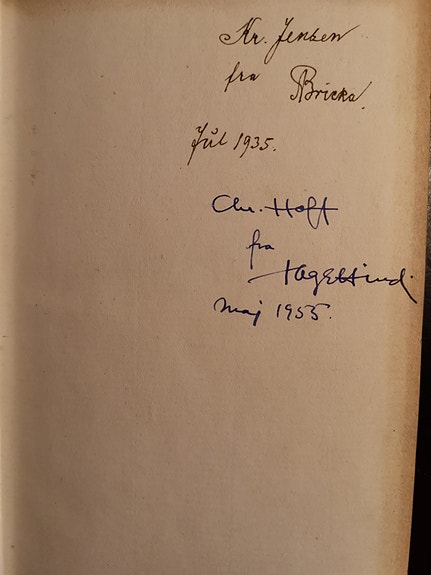 Kr. Jensen
fra Bricka.
Jul 1935.
Chr. Hoff
fra
Maj 1955.